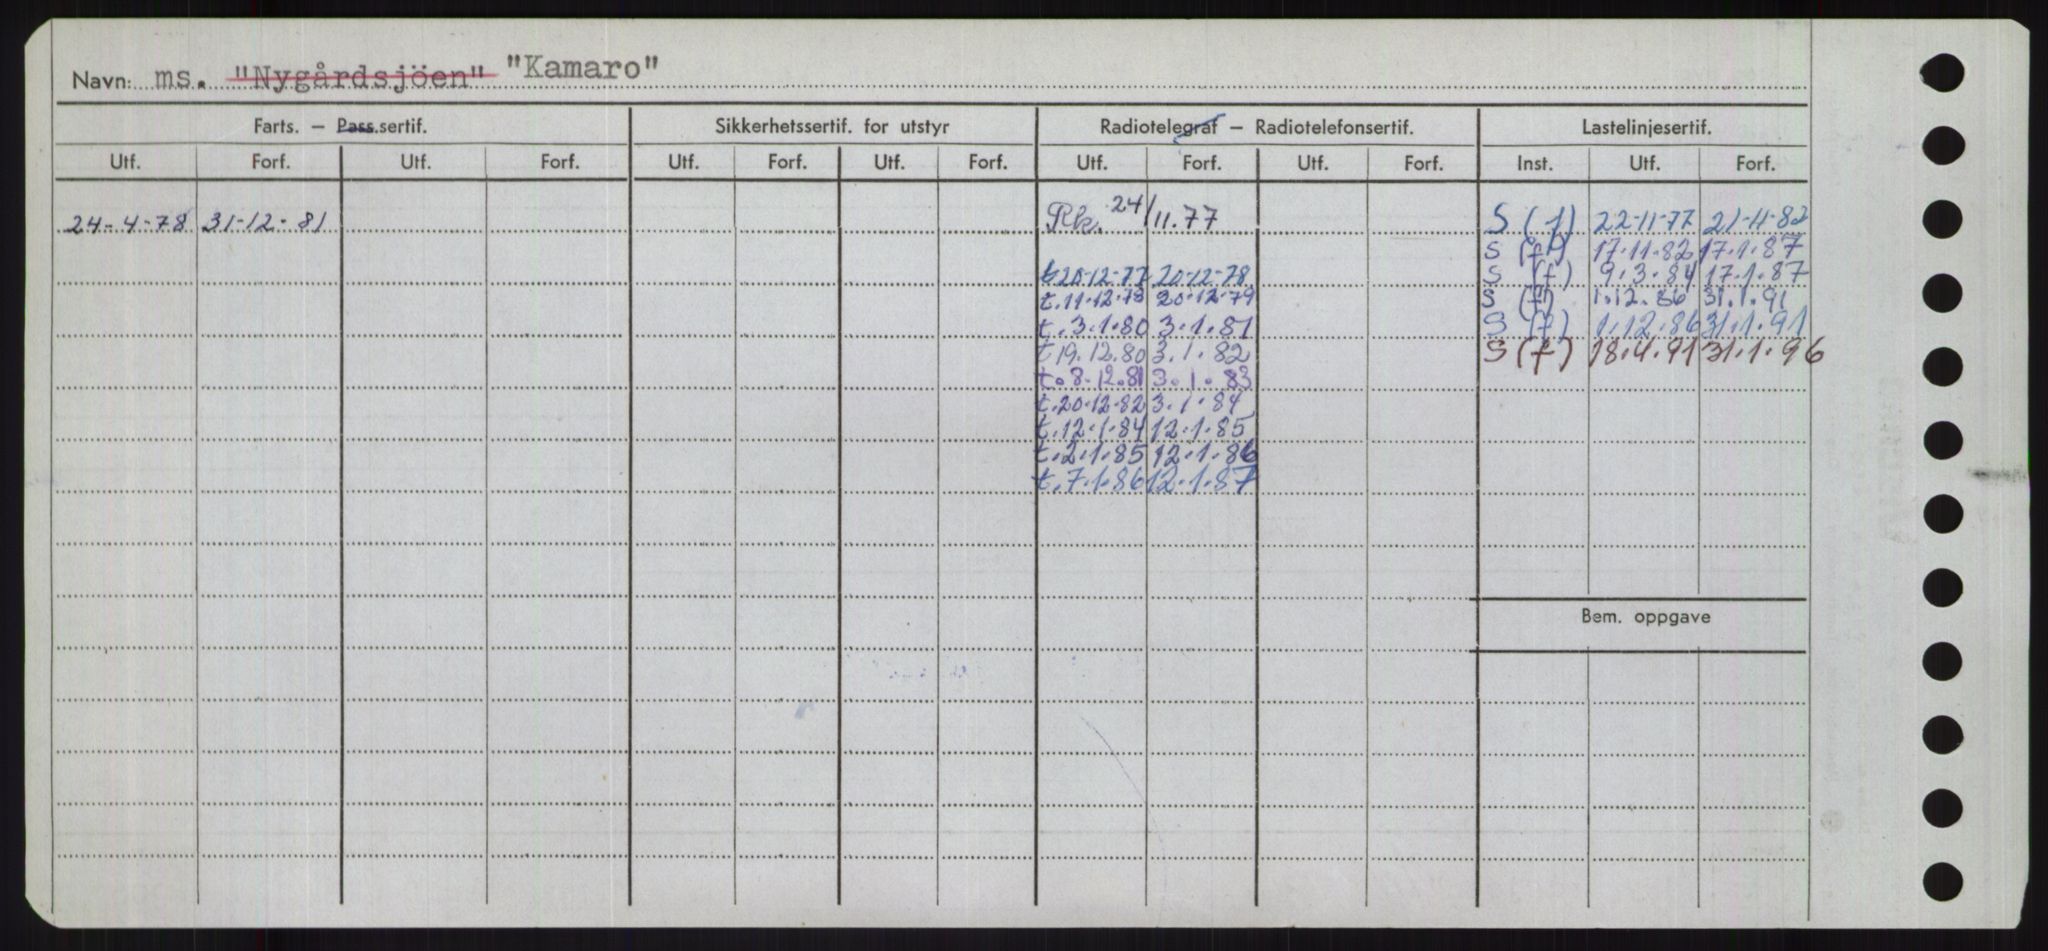 Navn: ms. "Nygårdsjöen" "Kamaro"
Farts. – Pass.sertif. Sikkerhetssertif. for utstyr Radiotelegraf – Radiotelefonsertif. Lastelinjesertif.
Utf. Forf. Utf. Forf. Utf. Forf. Utf. Forf. Utf. Forf. Utf. Forf. Inst. Utf. Forf.
24-4-78 31-12-81 Rk. 24/11.77 S (f) 22-11-77 21-11-82
S (f) 17.11.82 17.1.87
t 20-12-77 20-12-78 S (f) 9.3.84 17.1.87
t. 11.12.78 20.12.79 S (f) 1.12.86 31.1.91
t. 3.1.80 3.1.81 S (f) 1.12.86 31.1.91
t 19.12.80 3.1.82 S (f) 18.4.91 31.1.96
t. 8.12.81 3.1.83
t. 20.12.82 3.1.84
t. 12.1.84 12.1.85
t. 2.1.85 12.1.86
t. 7.1.86 12.1.87
Bem. oppgave